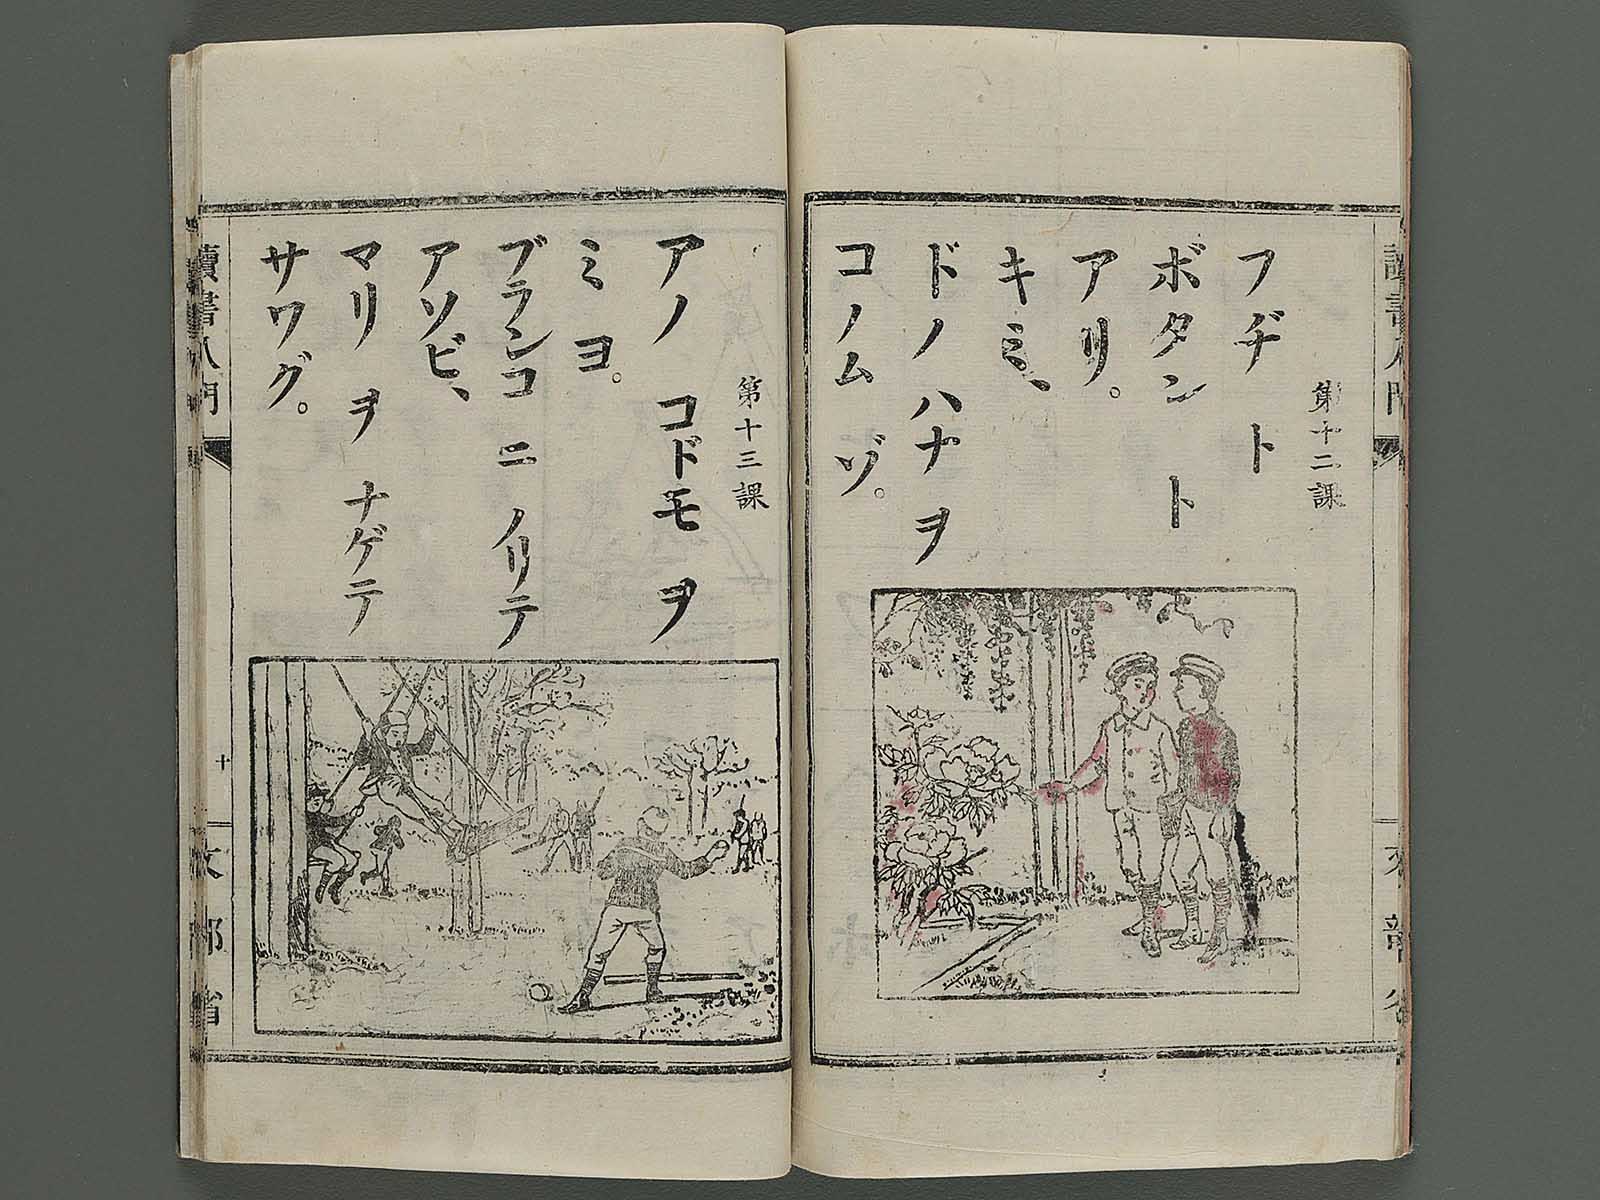 第十二課
フヂ ト
ボタン ト
アリ。
キミ、
ドノ ハナ ヲ
コノム ゾ。
第十三課
アノ コドモ ヲ
ミヨ。
ブランコ ニ ノリテ
アソビ、
マリ ヲ ナゲテ
サワグ。
讀書入門
十
文部省